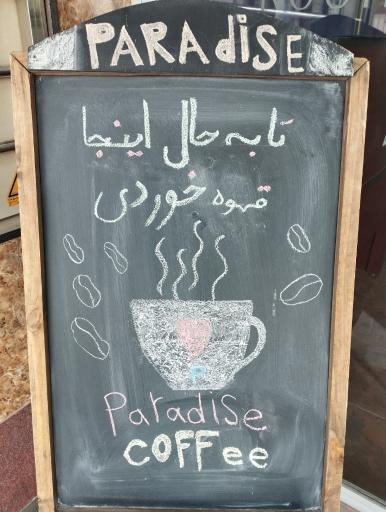 PARAdiSE
تا به حال اینجا
قهوه خوردی
Paradise
COFFee